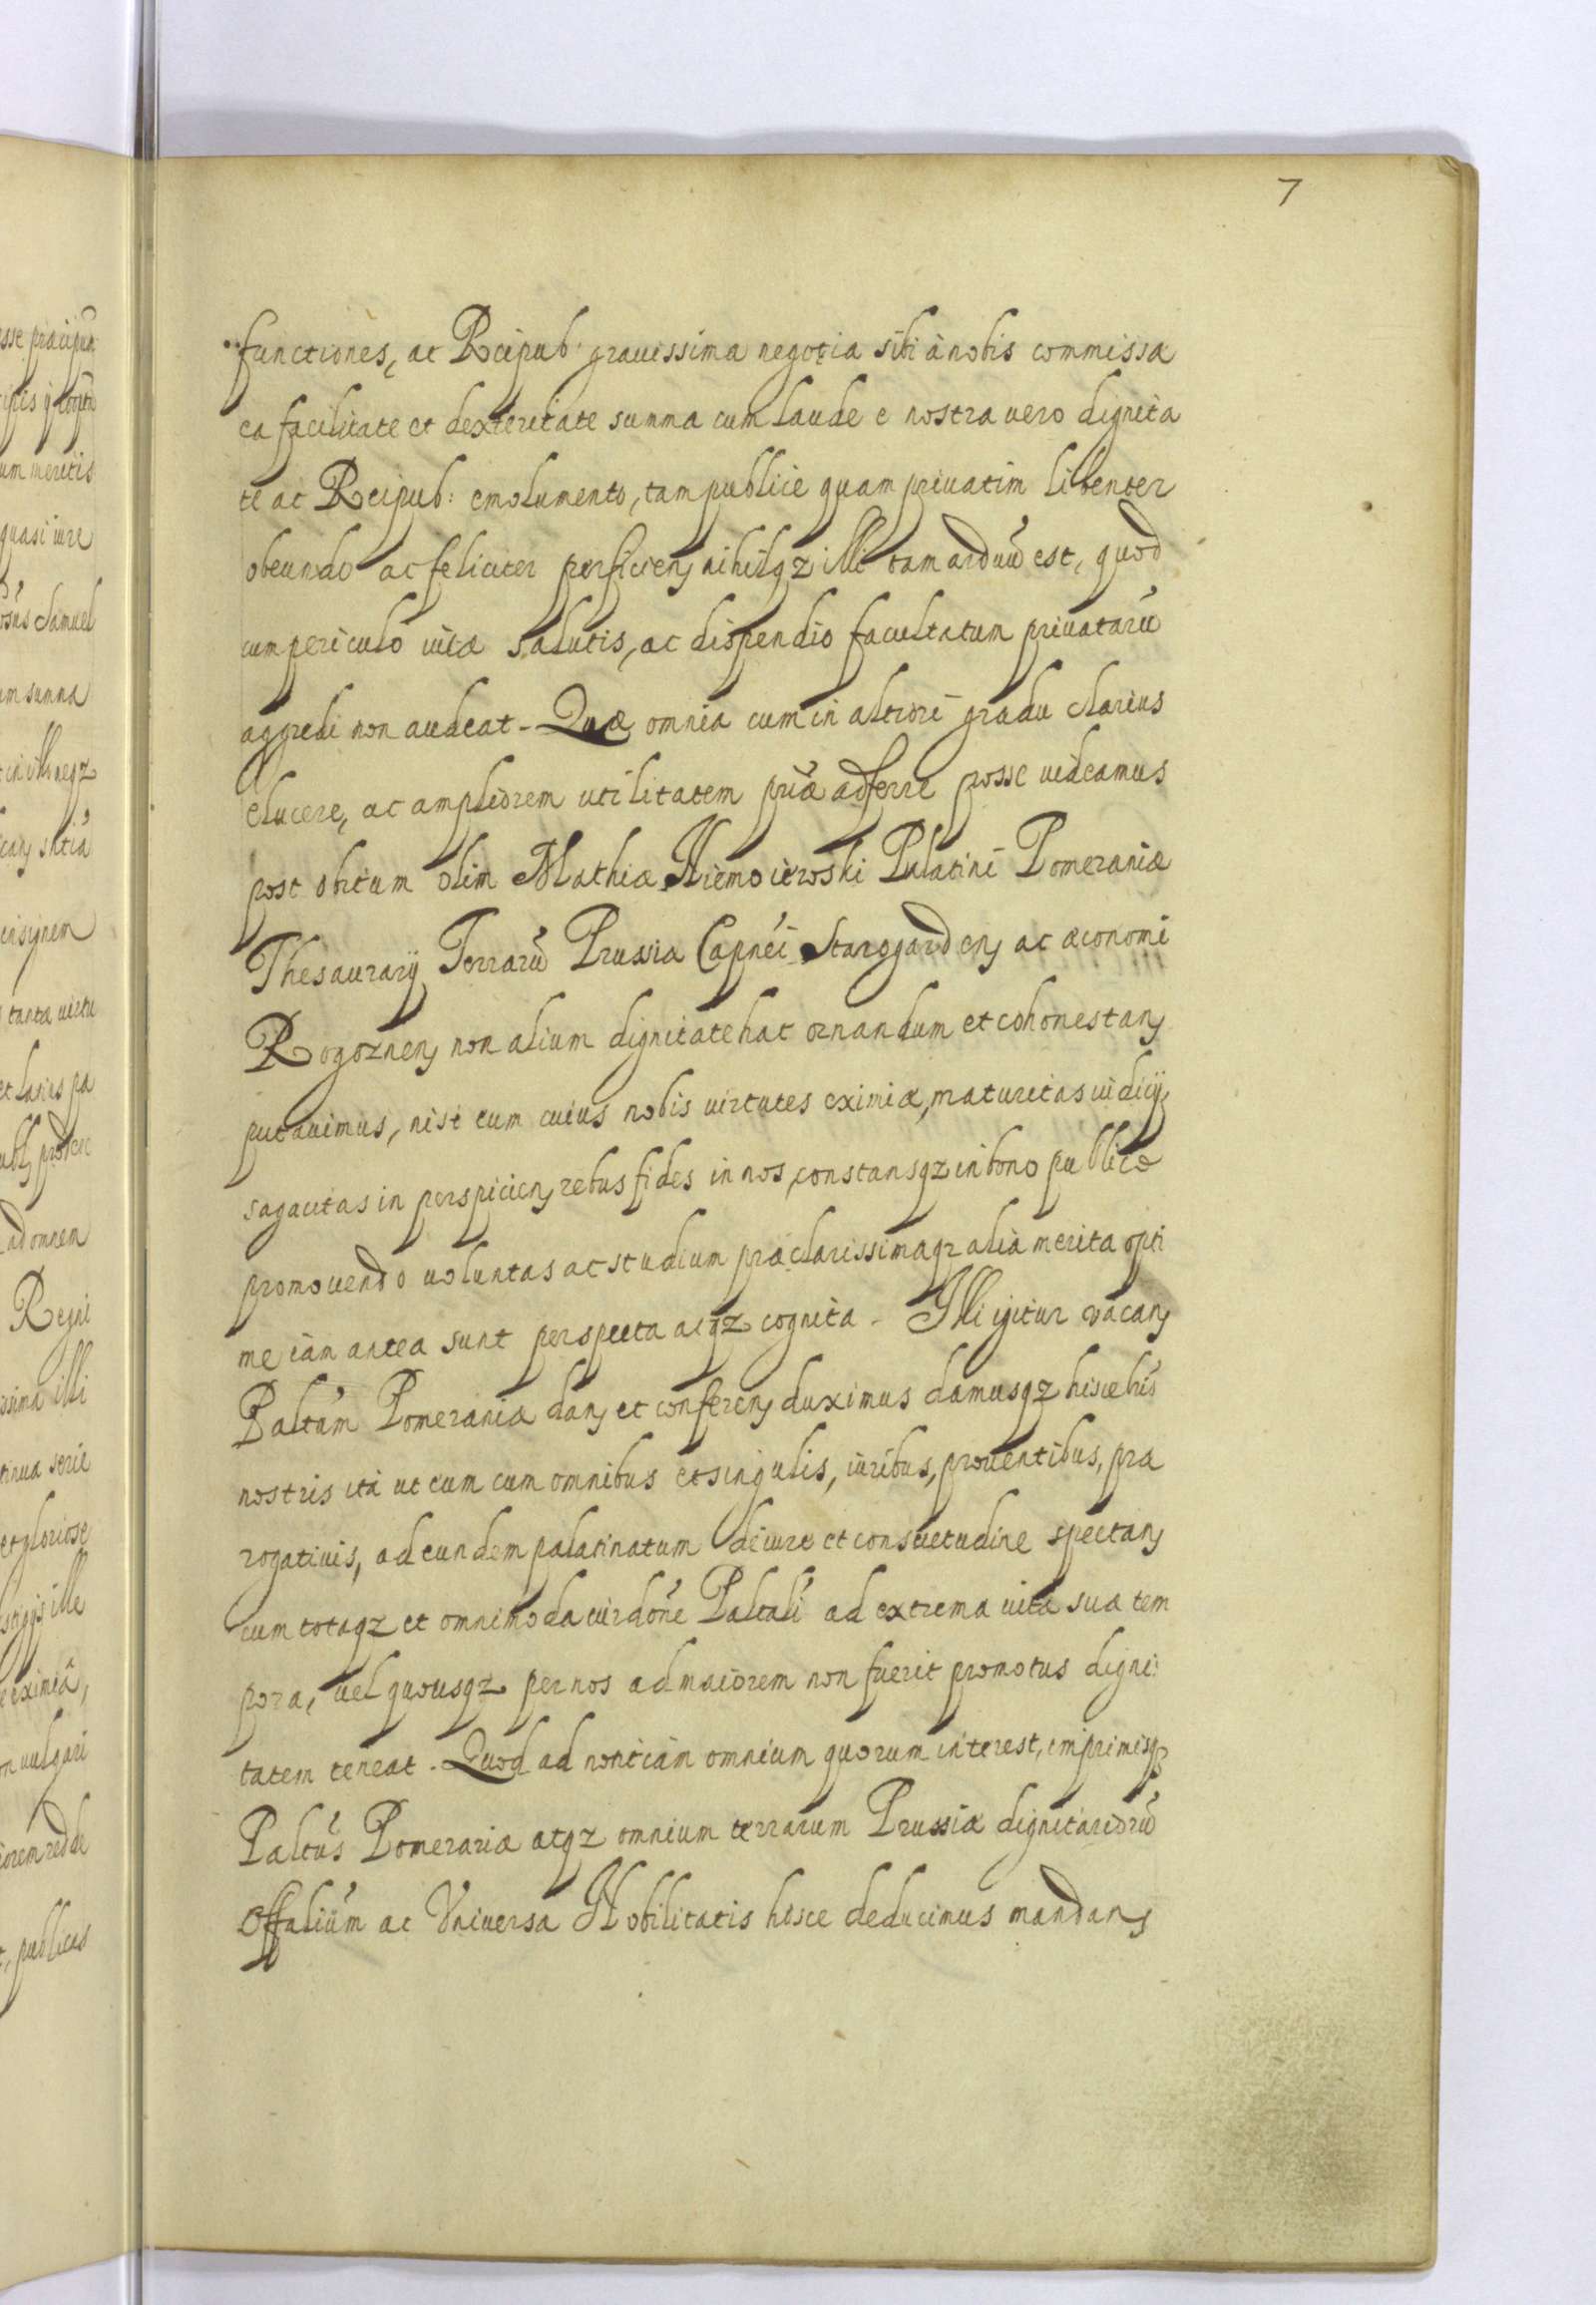 7
functiones, ac Reipub: grauissima negotia sibi à nobis commissa
ea facilitate et dexteritate summa cum laude e nostra vero dignita
te ac Reipub: emolumento, tam publice quam priuatim libenter
obeundo ac feliciter perficiens nihilqz illi tam arduū est, quod
cum periculo vitæ salutis, ac dispendio facultatum priuatarū
aggredi non audeat - Quæ omnia cum in altiori gradu clarius
elucere, ac ampliorem utilitatem adferre posse videamus
post obitum olim Mathiæ Niemoiewski Palatini Pomeraniæ
Thesaurarij Terrarū Prussiæ Capnéi Starogardens ac œconomi
Rogoznens non alium dignitate hac ornandum et cohonestans
putauimus, nisi eum cuius nobis virtutes eximiæ, maturitas iudicij,
sagacitas in perspiciens rebus fides in nos, constansqz in bono publico
promouendo voluntas ac studium præclarissimaqz alia merita opti
me iam antea sunt perspecta acqz cognita - Illi igitur vacans
Paltum Pomeraniæ dans et conferens duximus damusqz hisce lrís
nostris ita ut eum cum omnibus et singulis, iuribus, prouentibus, præ
rogatiuis, ad eundem palatinatum de iure et consuetudine spectans
cum totaqz et omnimoda iurdōne Paltali ad extrema vitæ suæ tem
pora, vel quousqz per nos ad maiorem non fuerit promotus digni:
tatem teneat - Quod ad nontiam omnium quorum interest, imprimisqz
Paltus Pomeraniæ atqz omnium terrarum Prussiæ dignitariorū
Offalium ac Vniversa Nobilitatis hisce deducimus mandans